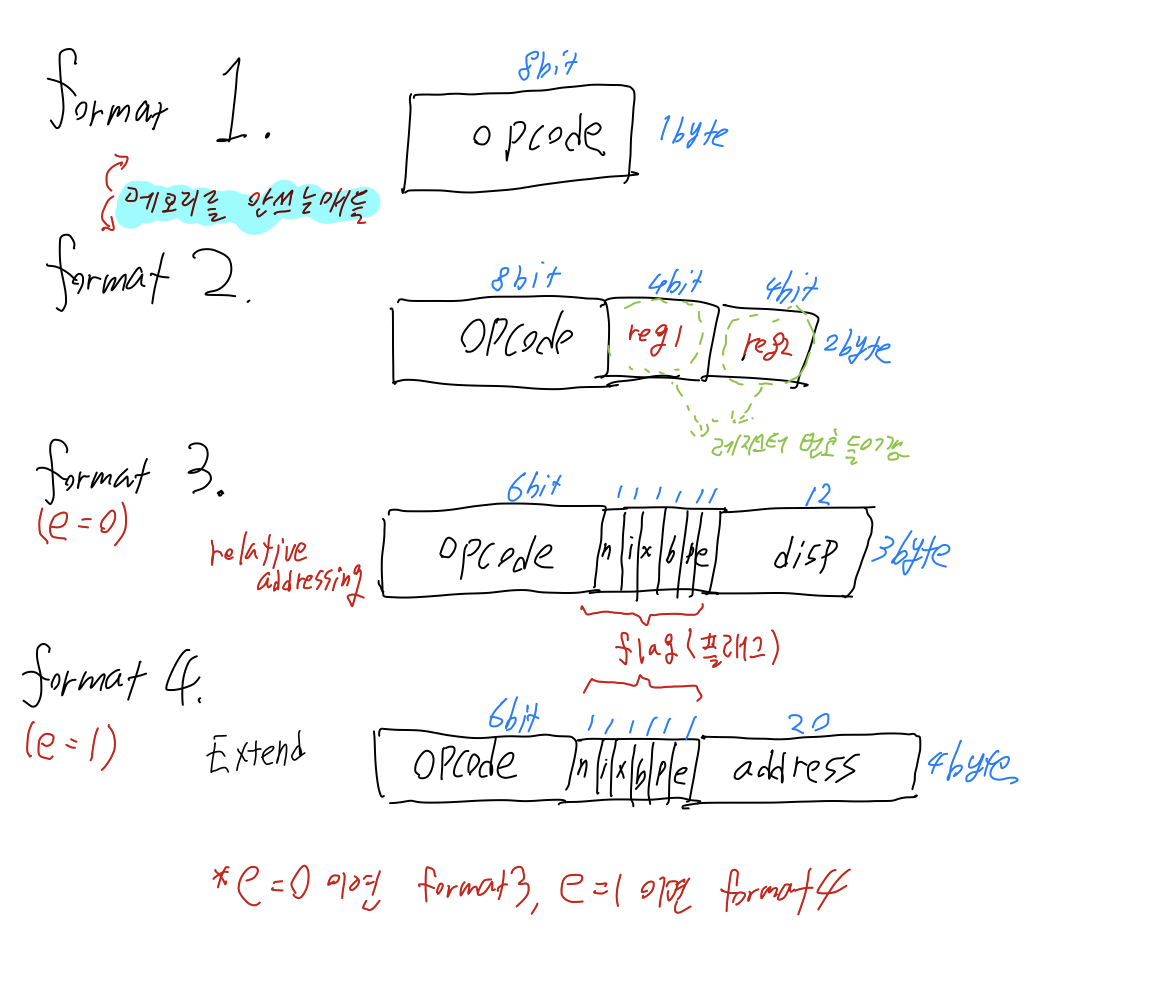 format 1.
8bit
opcode
1byte
메모리를 안쓰는애들
format 2.
8bit 4bit 4bit
opcode reg1 reg2
2byte
레지스터 번호 들어감
format 3.
(e=0)
relative
addressing
6bit 1 1 1 1 1 1 12
opcode n i x b p e disp
3byte
flag (플래그)
format 4.
(e=1)
Extend
6bit 1 1 1 1 1 1 20
opcode n i x b p e address
4byte
*e=0 이면 format3, e=1 이면 format4